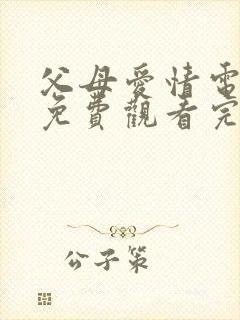 父母愛情電
免費觀看完
公子策